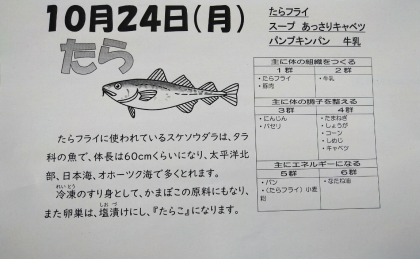 10月24日（月）
たら
たらフライ
スープ あっさりキャベツ
パンプキンパン 牛乳
たらフライに使われているスケソウダラは、タラ
科の魚で、体長は60cmくらいになり、太平洋北
部、日本海、オホーツク海で多くとれます。
れいとう
冷凍のすり身として、かまぼこの原料にもなり、
しおづ
また卵巣は、塩漬けにし、『たらこ』になります。
主に体の組織をつくる
1群 2群
・たらフライ ・牛乳
・豚肉
主に体の調子を整える
3群 4群
・にんじん ・たまねぎ
・パセリ ・しょうが
・コーン
・しめじ
・キャベツ
主にエネルギーになる
5群 6群
・パン ・なたね油
・(たらフライ)小麦
粉